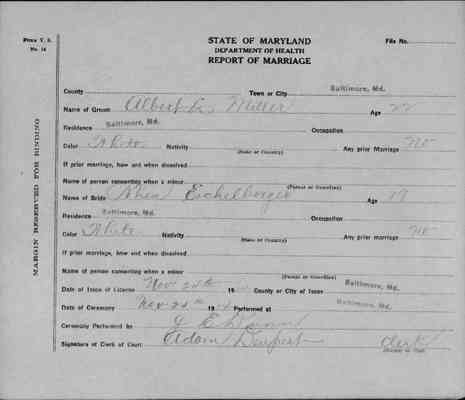 Form V. S.
No. 16
STATE OF MARYLAND
DEPARTMENT OF HEALTH
REPORT OF MARRIAGE
File No.
County Town or City Baltimore, Md.
Name of Groom Albert Miller Age 22
Residence Baltimore, Md. Occupation
Color White Nativity (State or Country) Any prior Marriage no
If prior marriage, how and when dissolved
Name of person consenting when a minor (Parent or Guardian)
Name of Bride Rhea Eichelberger Age 19
Residence Baltimore, Md. Occupation
Color White Nativity (State or Country) Any prior marriage no
If prior marriage, how and when dissolved
Name of person consenting when a minor (Parent or Guardian)
Date of Issue of License Nov 19 County or City of Issue Baltimore, Md.
Date of Ceremony Nov 19 Performed at Baltimore, Md.
Ceremony Performed by
Signature of Clerk of Court Adam Deupert Clerk
MARGIN RESERVED FOR BINDING